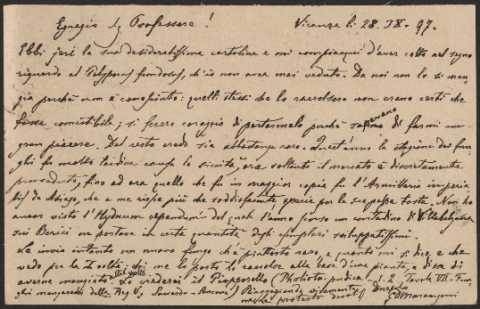 Egregio Sig. Professore! Vicenza li 28. IX. 97.
Ebbi jeri la sua desideratissima cartolina e mi compiacqui d'aver colto nel segno
riguardo al Polyporus frondosus, ch'io non avea mai veduto. Da noi non lo si man-
gia perchè non è conosciuto: quelli stessi che lo raccolsero non erano certi che
fosse comestibile; si fecero coraggio di portarmelo perchè sapevano di farmi un
gran piacere. Del resto credo sia abbastanza raro. Quest'anno la stagione dei fun-
ghi fu molto tardiva causa la siccità, ora soltanto il mercato è discretamente
provveduto, fino ad ora quello che fu in maggior copia fu l'Armillaria imperia-
lis di Asiago, che a me riesce più che soddisfacente, grazie per la sua polpa tosta. Non ho
ancor visto l'Hydnum repandum del quale l'anno scorso un contadino di Villabalzana
sui Berici me portava in certa quantità degli esemplari sviluppatissimi.
Le invio intanto un nuovo fungo ch'è piuttosto raro a quanto mi si dice, e che
vedo per la Iª volta; chi me lo portò lo raccolse alla base d'una pianta, e disse di
averne mangiato. Lo crederei il Piopparello (Pholiota pudica) d. 2 Tavola VII. Fun-
ghi mangerecci delle
Ringraziandola vivamente
me le protesto